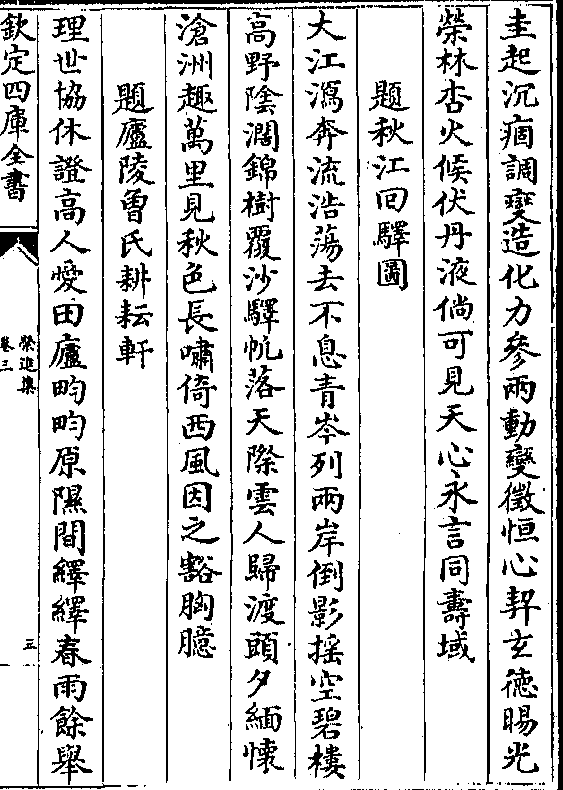 圭起沉痼調燮造化力參兩動變徵恒心契玄德暘光
榮林杏火候伏丹液倘可見天心永言同壽域
題秋江回驛圖
大江瀉奔流浩蕩去不息青岑列兩岸倒影揺空碧樓
高野陰濶錦樹覆沙驛帆落天際雲人歸渡頭夕緬懐
滄洲趣萬里見秋色長嘯倚西風因之豁胸臆
題廬陵曾氏耕耘軒
理世協休證高人愛田廬畇畇原隰間繹繹春雨餘舉
欽定四庫全書
榮進集
卷三
三